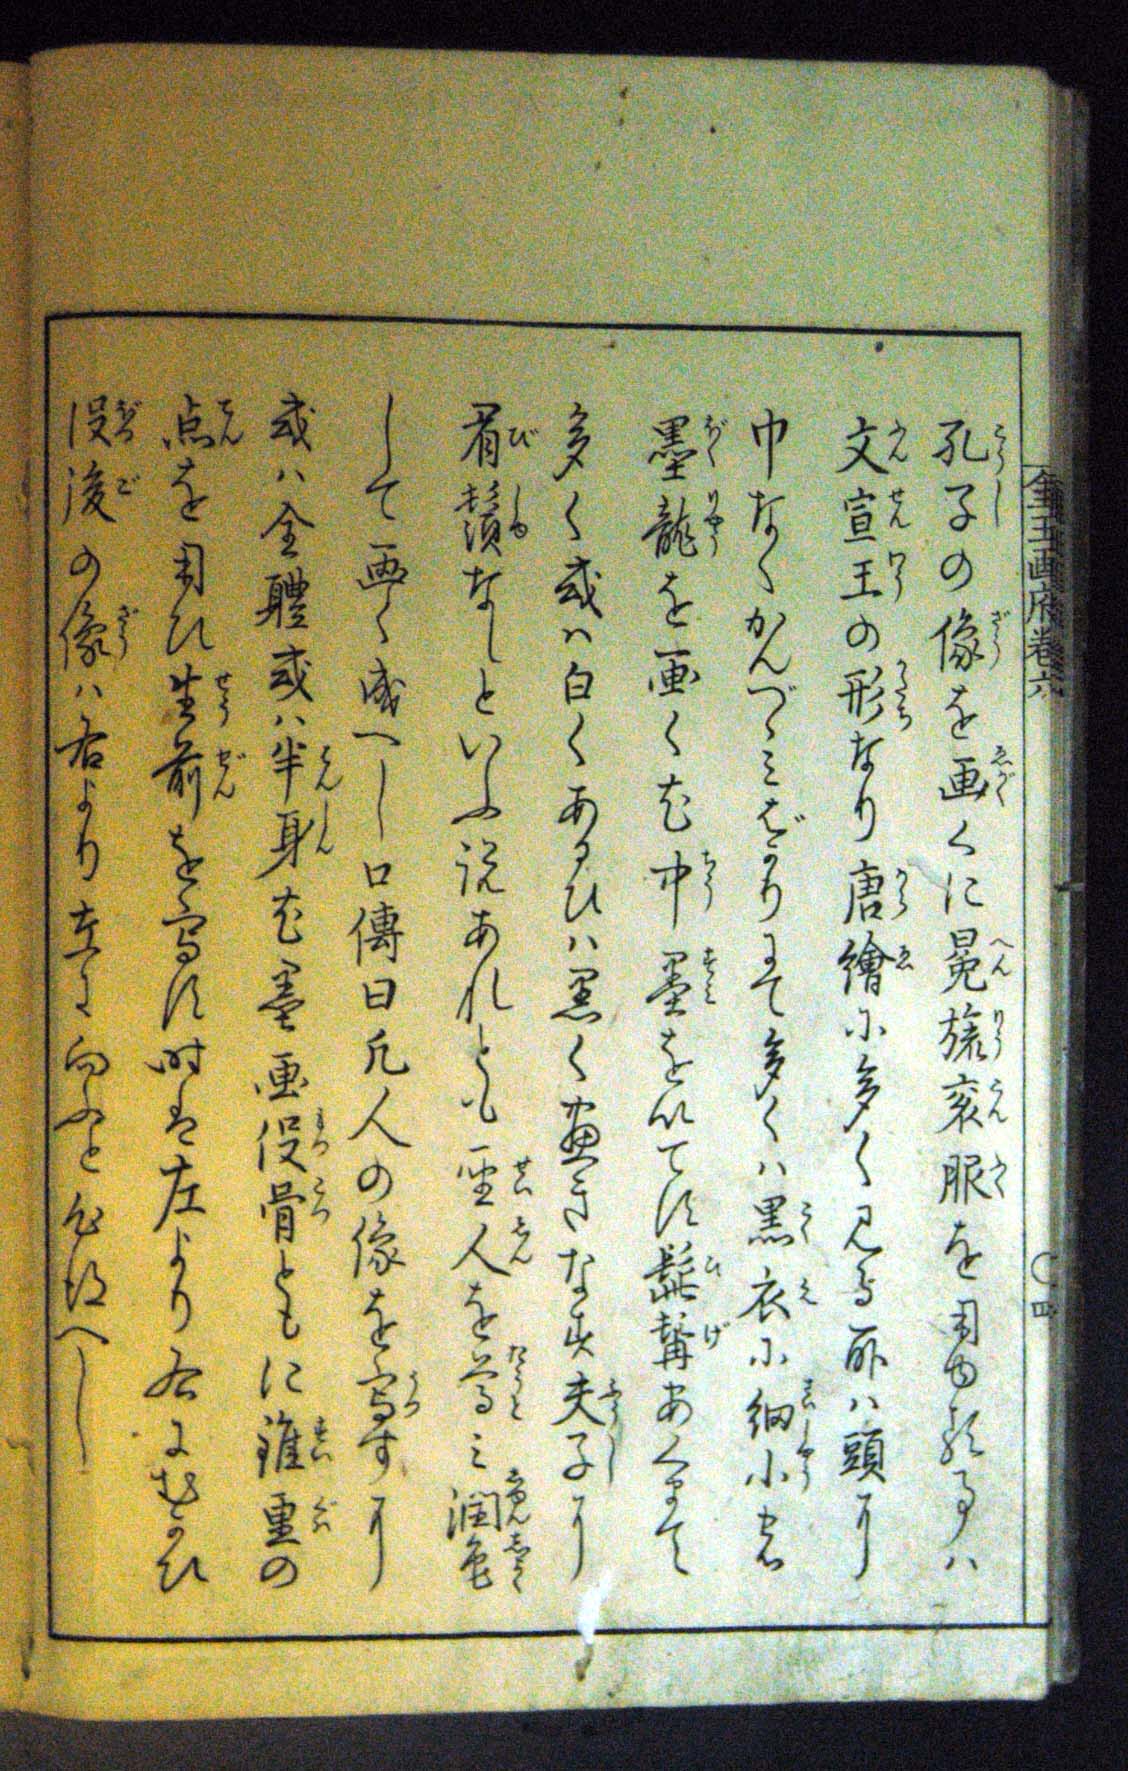 孔子の像を画くに冕旒袞服を用ゆる事ハ
文宣王の形なり唐繪に多く見る所ハ頭に
巾なくかんづゝみばかりにて多くハ黒衣に細小き
墨龍を画く尤中墨を以てす髭髯あくまて
多く或ハ白くあるひハ黒く画きなす夫子に
眉鬚なしといふ説あれとも聖人を尊み潤色
して画く成へし口傳曰凡人の像を寫すに
或ハ全體或ハ半身尤墨画没骨ともに錐重の
点を用ひ生前を寫す時は左より右にむかひ
没後の像ハ右より左に向ふと心得へし
画府巻六
四